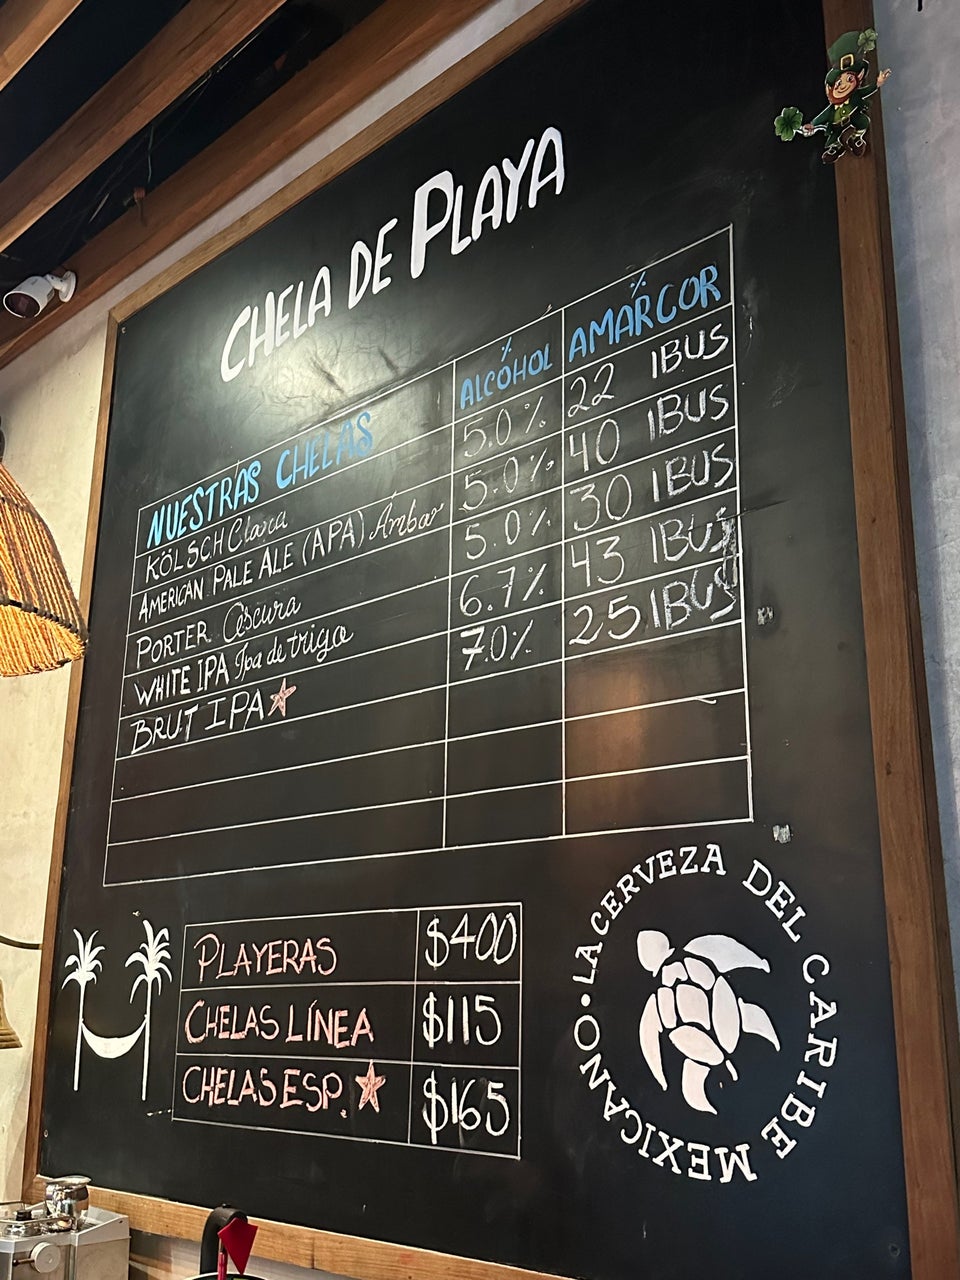 CHELA DE PLAYA
NUESTRAS CHELAS % ALCOHOL % AMARGOR
KÖLSCH Clara 5.0% 22 IBUS
AMERICAN PALE ALE (APA) Ámbar 5.0% 40 IBUS
PORTER Oscura 5.0% 30 IBUS
WHITE IPA Ipa de trigo 6.7% 43 IBUS
BRUT IPA 7.0% 25 IBUS
PLAYERAS $400
CHELAS LÍNEA $115
CHELAS ESP. $165
LA CERVEZA DEL CARIBE MEXICANO